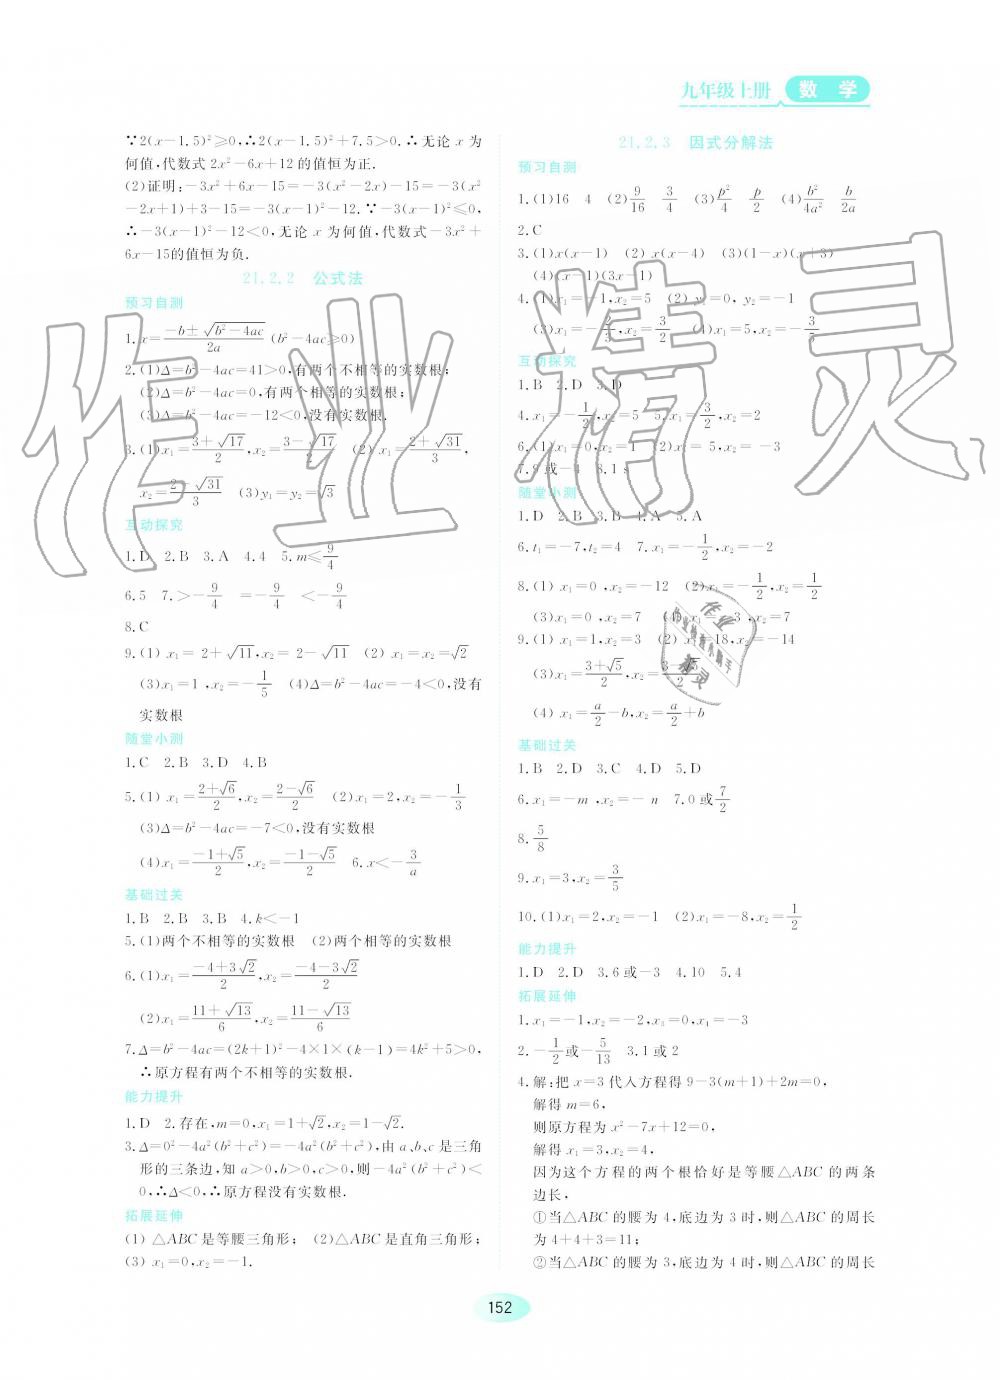 九年级上册 数 学
∵2(x-1.5)²≥0,∴2(x-1.5)²+7.5>0.∴无论 x 为
何值,代数式 2x²-6x+12 的值恒为正.
(2)证明:-3x²+6x-15=-3(x²-2x)-15=-3(x²
-2x+1)+3-15=-3(x-1)²-12.∵-3(x-1)²≤0,
∴-3(x-1)²-12<0,无论 x 为何值,代数式-3x²+
6x-15的值恒为负.
21.2.2 公式法
预习自测
1.x=(-b±√(b²-4ac))/2a (b²-4ac≥0)
2.(1)Δ=b²-4ac=41>0,有两个不相等的实数根;
(2)Δ=b²-4ac=0,有两个相等的实数根;
(3)Δ=b²-4ac=-12<0,没有实数根.
3.(1)x₁=(3+√17)/2,x₂=(3-√17)/2 (2)x₁=(2+√31)/3,
x₂=(2-√31)/3 (3)y₁=y₂=√3
互动探究
1.D 2.B 3.A 4.4 5.m≤9/4
6.5 7.>-9/4 =-9/4 <-9/4
8.C
9.(1) x₁=2+√11,x₂=2-√11 (2) x₁=x₂=√2
(3)x₁=1,x₂=-1/5 (4)Δ=b²-4ac=-4<0,没有
实数根
随堂小测
1.C 2.B 3.D 4.B
5.(1) x₁=(2+√6)/2,x₂=(2-√6)/2 (2)x₁=2,x₂=-1/3
(3)Δ=b²-4ac=-7<0,没有实数根
(4)x₁=(-1+√5)/2,x₂=(-1-√5)/2 6.x<-3/a
基础过关
1.B 2.B 3.B 4.k<-1
5.(1)两个不相等的实数根 (2)两个相等的实数根
6.(1)x₁=(-4+3√2)/2,x₂=(-4-3√2)/2
(2)x₁=(11+√13)/6,x₂=(11-√13)/6
7.Δ=b²-4ac=(2k+1)²-4×1×(k-1)=4k²+5>0,
∴原方程有两个不相等的实数根.
能力提升
1.D 2.存在,m=0,x₁=1+√2,x₂=1-√2.
3.Δ=0²-4a²(b²+c²)=-4a²(b²+c²),由 a,b,c 是三角
形的三条边,知 a>0,b>0,c>0,则-4a²(b²+c²)<
0,∴Δ<0,∴原方程没有实数根.
拓展延伸
(1) △ABC 是等腰三角形; (2)△ABC 是直角三角形;
(3) x₁=0,x₂=-1.
21.2.3 因式分解法
预习自测
1.(1)16 4 (2)9/16 3/4 (3)p²/4 p/2 (4)b²/4a² b/2a
2.C
3.(1)x(x-1) (2)x(x-4) (3)(1-x)(x+3)
(4)(x-1)(3x-1)
4.(1)x₁=-1,x₂=5 (2) y₁=0,y₂=-1
(3)x₁=-2/3,x₂=3/2 (4)x₁=5,x₂=-3/5
互动探究
1.B 2.D 3.D
4.x₁=-1/2,x₂=5 5.x₁=3/2,x₂=2
6.(1)x₁=0,x₂=1 (2)x₁=5,x₂=-3
7.9 或-4 8.1 s
随堂小测
1.D 2.B 3.B 4.A 5.A
6.t₁=-7,t₂=4 7.x₁=-1/2,x₂=-2
8.(1) x₁=0,x₂=-12 (2)x₁=-1/2,x₂=1/2
(3)x₁=0,x₂=7 3,x₂=7
9.(1)x₁=1,x₂=3 (2) x₁=18,x₂=-14
(3)x₁=(3+√5)/2,x₂=(3-√5)/2
(4) x₁=a/2-b,x₂=a/2+b
基础过关
1.B 2.D 3.C 4.D 5.D
6.x₁=-m,x₂=-n 7.0 或7/2
8.5/8
9.x₁=3,x₂=3/5
10.(1)x₁=2,x₂=-1 (2)x₁=-8,x₂=1/2
能力提升
1.D 2.D 3.6 或-3 4.10 5.4
拓展延伸
1.x₁=-1,x₂=-2,x₃=0,x₄=-3
2.-1/2或-5/13 3.1 或 2
4.解:把 x=3 代入方程得 9-3(m+1)+2m=0,
解得 m=6,
则原方程为 x²-7x+12=0,
解得 x₁=3,x₂=4,
因为这个方程的两个根恰好是等腰△ABC 的两条
边长,
①当△ABC 的腰为 4,底边为 3 时,则△ABC 的周长
为 4+4+3=11;
②当△ABC 的腰为 3,底边为 4 时,则△ABC 的周长
152
作业精灵
作业
作业检查小助手
精灵